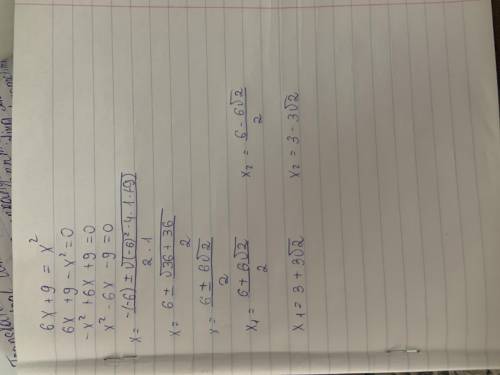 6x + 9 = x²
6x + 9 - x² = 0
-x² + 6x + 9 = 0
x² - 6x - 9 = 0
x = -(-6) ± √(-6)² - 4 · 1 · (-9) / 2 · 1
x = 6 ± √36 + 36 / 2
x = 6 ± 6√2 / 2
x₁ = 6 + 6√2 / 2    x₂ = 6 - 6√2 / 2
x₁ = 3 + 3√2    x₂ = 3 - 3√2